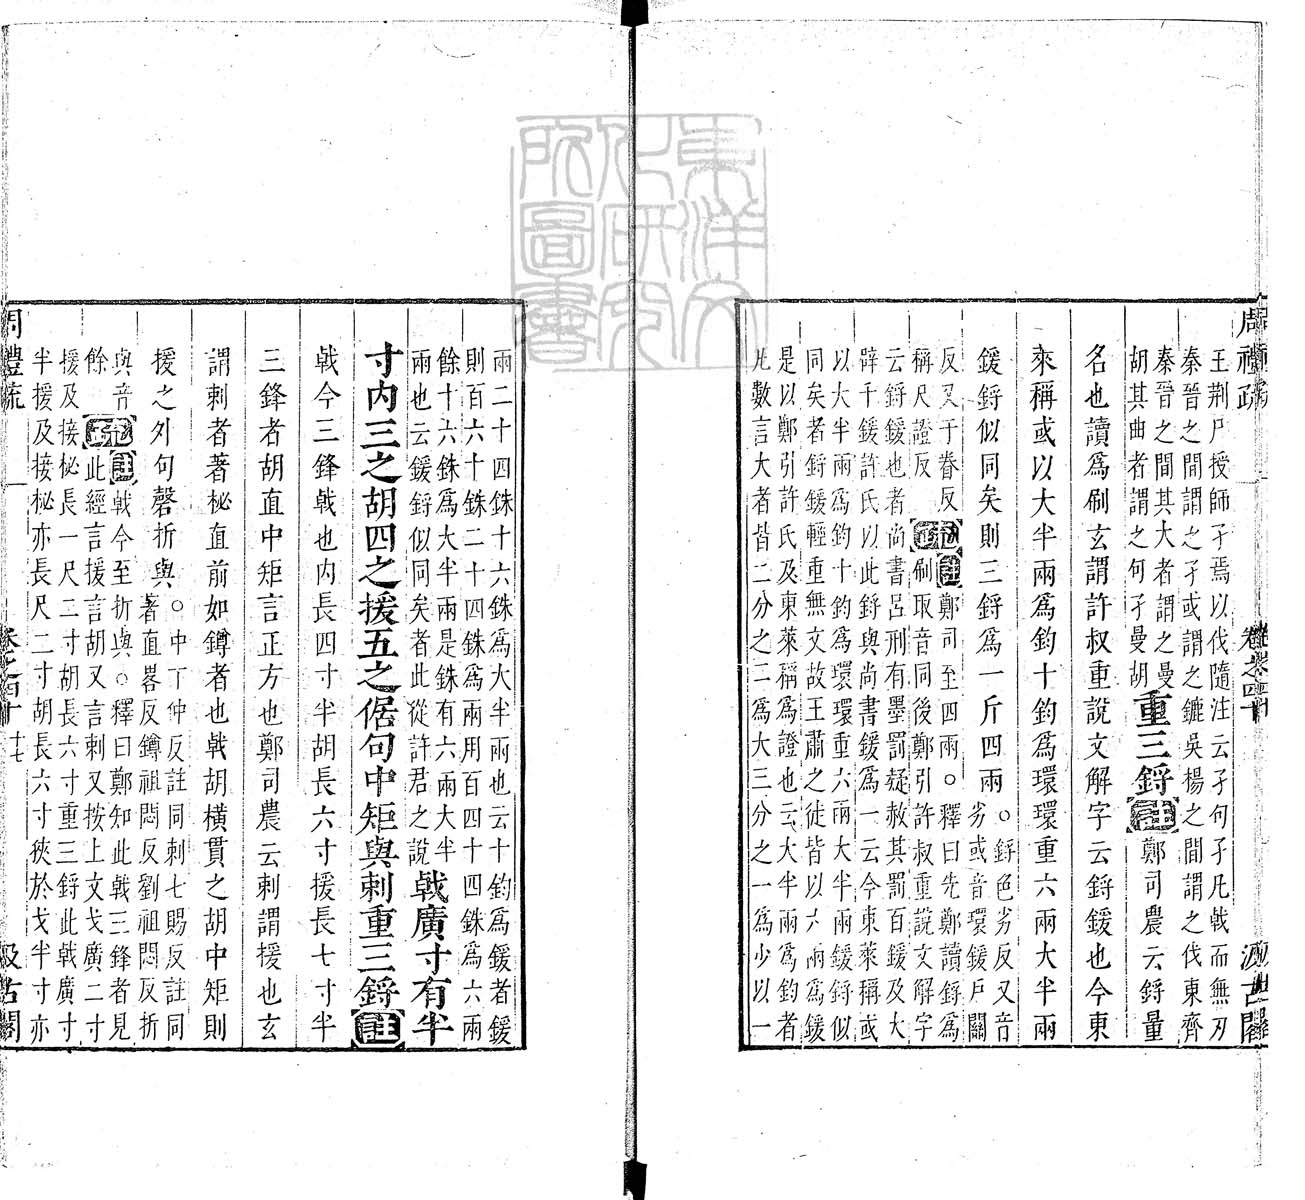 周禮疏 卷之四十 汲古閣
王荆尸授師孑焉以伐隨注云孑句孑凡戟而無刃
秦晉之間謂之孑或謂之鏔吳楊之間謂之伐東齊
秦晉之間其大者謂之曼
胡其曲者謂之句孑曼胡
重三鋝註鄭司農云鋝量
名也讀爲刷玄謂許叔重說文解字云鋝鍰也今東
萊稱或以大半兩爲鈞十鈞爲環環重六兩大半兩
鍰鋝似同矣則三鋝爲一斤四兩
○鋝色劣反又音
劣或音環鍰戶關
反又于眷反
稱尺證反
疏註鄭司至四兩○釋曰先鄭讀鋝爲
刷取音同後鄭引許叔重說文解字
云鋝鍰也者尚書呂刑有墨罰疑赦其罰百鍰及大
辟千鍰許氏以此鋝與尚書鍰爲一云今東萊稱或
以大半兩爲鈞十鈞爲環環重六兩大半兩鍰鋝似
同矣者鋝鍰輕重無文故王肅之徒皆以六兩爲鍰
是以鄭引許氏及東萊稱爲證也云大半兩爲鈞者
凡數言大者皆三分之二爲大三分之一爲少以一
兩二十四銖十六銖爲大半兩也云十鈞爲鍰者鍰
則百六十銖二十四銖爲兩用百四十四銖爲六兩
餘十六銖爲大半兩是銖有六兩大半
兩也云鍰鋝似同矣者此從許君之說
戟廣寸有半
寸內三之胡四之援五之倨句中矩與刺重三鋝註
戟今三鋒戟也內長四寸半胡長六寸援長七寸半
三鋒者胡直中矩言正方也鄭司農云刺謂援也玄
謂刺者著柲直前如鐏者也戟胡橫貫之胡中矩則
援之外句磬折與
○中丁仲反註同刺七賜反註同
著直畧反鐏祖悶反劉祖悶反折
與音
餘
疏註戟今至折與○釋曰鄭知此戟三鋒者見
此經言援言胡又言刺又按上文戈廣二寸
援及接柲長一尺二寸胡長六寸重三鋝此戟廣寸
半援及接柲亦長尺二寸胡長六寸狹於戈半寸亦
周禮疏 卷之四十 十七 汲古閣
東洋文化研究所圖書